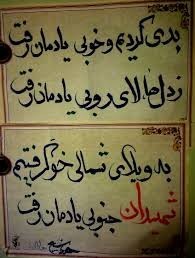 بدی کردیم و خوبی یادمان رفت
ز دلها لای روبی یادمان رفت
به ویلای شمالی خو گرفتیم
شهیدان جنوبی یادمان رفت